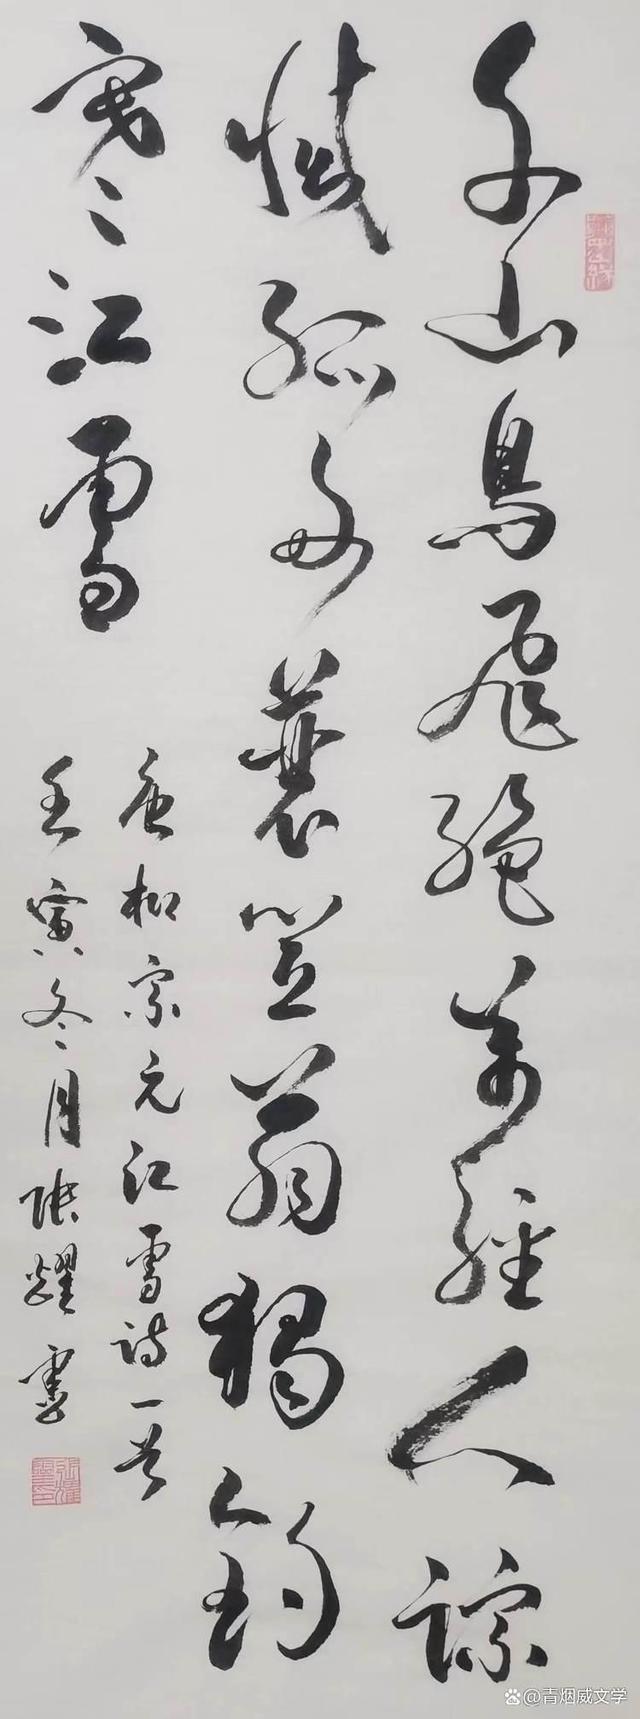 千山鳥飛絕萬徑人踪
滅孤舟蓑笠翁獨釣
寒江雪
唐柳宗元江雪詩一首
壬寅冬月張耀
@青烟威文学